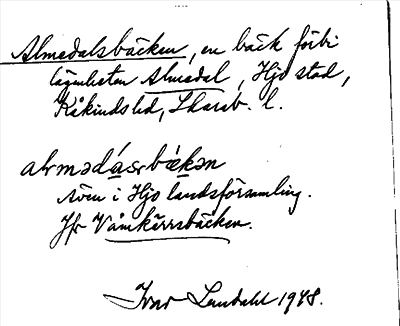 Almedalsbäcken, en bäck förbi
lägenheten Almedal, Hjo stad,
Kåkinds hd, Skarab. l.
almədɑ́sbækən
även i Hjo landsförsamling.
Jfr Våmkärrsbäcken.
Ivar Lundahl 1948.